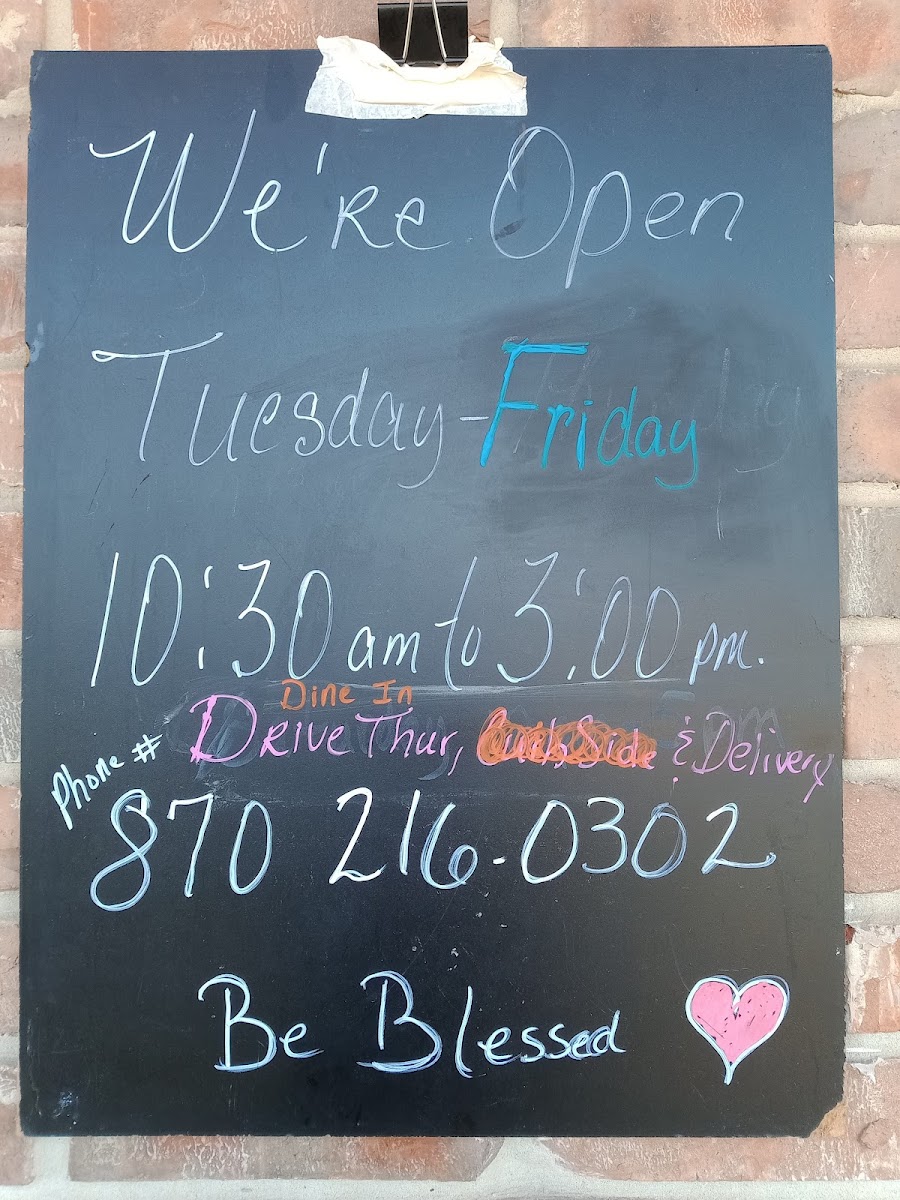 We're Open
Tuesday-Friday
10:30 am to 3:00 pm.
Dine In
Drive Thur, Curb Side & Delivery
Phone #
870 216-0302
Be Blessed